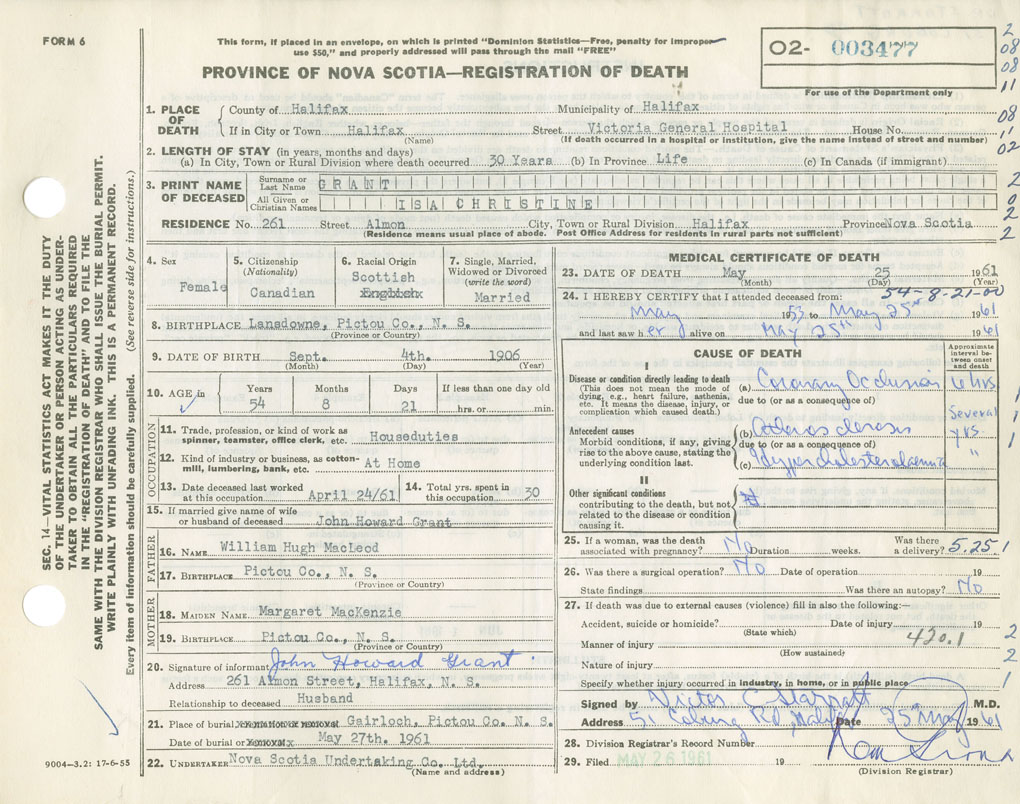 FORM 6
This form, if placed in an envelope, on which is printed "Dominion Statistics—Free, penalty for improper
use $50," and properly addressed will pass through the mail "FREE"
PROVINCE OF NOVA SCOTIA—REGISTRATION OF DEATH
O2- 003477
For use of the Department only
2
08
08
11
08
11
02
2
0
2
2
SEC. 14—VITAL STATISTICS ACT MAKES IT THE DUTY
OF THE UNDERTAKER OR PERSON ACTING AS UNDER-
TAKER TO OBTAIN ALL THE PARTICULARS REQUIRED
IN THE "REGISTRATION OF DEATH" AND TO FILE THE
SAME WITH THE DIVISION REGISTRAR WHO SHALL ISSUE THE BURIAL PERMIT.
WRITE PLAINLY WITH UNFADING INK. THIS IS A PERMANENT RECORD.
Every item of information should be carefully supplied. (See reverse side for instructions.)
1. PLACE OF DEATH
County of Halifax Municipality of Halifax
If in City or Town Halifax Street Victoria General Hospital House No.
(Name) (If death occurred in a hospital or institution, give the name instead of street and number)
2. LENGTH OF STAY (in years, months and days)
(a) In City, Town or Rural Division where death occurred 30 Years (b) In Province Life (c) In Canada (if immigrant)
3. PRINT NAME OF DECEASED
Surname or Last Name GRANT
All Given or Christian Names ISA CHRISTINE
RESIDENCE No. 261 Street Almon City, Town or Rural Division Halifax Province Nova Scotia
(Residence means usual place of abode. Post Office Address for residents in rural parts not sufficient)
4. Sex
Female
5. Citizenship
(Nationality)
Canadian
6. Racial Origin
Scottish
English
7. Single, Married, Widowed or Divorced
(write the word)
Married
8. BIRTHPLACE Lansdowne, Pictou Co., N. S.
(Province or Country)
9. DATE OF BIRTH Sept. 4th. 1906
(Month) (Day) (Year)
10. AGE in
Years Months Days If less than one day old
54 8 21 hrs. or min.
OCCUPATION
11. Trade, profession, or kind of work as
spinner, teamster, office clerk, etc. Houseduties
12. Kind of industry or business, as cotton-
mill, lumbering, bank, etc. At Home
13. Date deceased last worked
at this occupation April 24/61
14. Total yrs. spent in
this occupation 30
15. If married give name of wife
or husband of deceased John Howard Grant
FATHER
16. NAME William Hugh MacLeod
17. BIRTHPLACE Pictou Co., N. S.
(Province or Country)
MOTHER
18. MAIDEN NAME Margaret MacKenzie
19. BIRTHPLACE Pictou Co., N. S.
(Province or Country)
20. Signature of informant John Howard Grant
Address 261 Almon Street, Halifax, N. S.
Relationship to deceased Husband
21. Place of burial, Gairloch, Pictou Co. N. S.
Date of burial or May 27th. 1961
22. UNDERTAKER Nova Scotia Undertaking Co. Ltd.
(Name and address)
9004—3.2: 17-6-55
MEDICAL CERTIFICATE OF DEATH
23. DATE OF DEATH May 25 1961
(Month) (Day) (Year)
54-8-21-00
24. I HEREBY CERTIFY that I attended deceased from:
May 1953 to May 25th 1961
and last saw her alive on May 25th 1961
CAUSE OF DEATH
Approximate interval between onset and death
I
Disease or condition directly leading to death
(This does not mean the mode of
dying, e.g., heart failure, asthenia,
etc. It means the disease, injury, or
complication which caused death.)
(a) Coronary Occlusion 6 hrs
due to (or as a consequence of)
Antecedent causes
Morbid conditions, if any, giving
rise to the above cause, stating the
underlying condition last.
(b) Atherosclerosis Several yrs.
due to (or as a consequence of)
(c) Hypercholesterolaemia "
II
Other significant conditions
contributing to the death, but not
related to the disease or condition
causing it.
25. If a woman, was the death
associated with pregnancy? No Duration weeks. Was there
a delivery? 5.25 1
26. Was there a surgical operation? No Date of operation 19
State findings Was there an autopsy? No
27. If death was due to external causes (violence) fill in also the following:—
Accident, suicide or homicide? Date of injury 19
(State which)
Manner of injury 420.1
(How sustained)
Nature of injury
Specify whether injury occurred in industry, in home, or in public place
Signed by Victor C. M.D.
Address 51 Coburg Rd Date 25th May 1961
28. Division Registrar's Record Number
29. Filed MAY 26 1961 19
(Division Registrar)
1
1
1
2
2
1